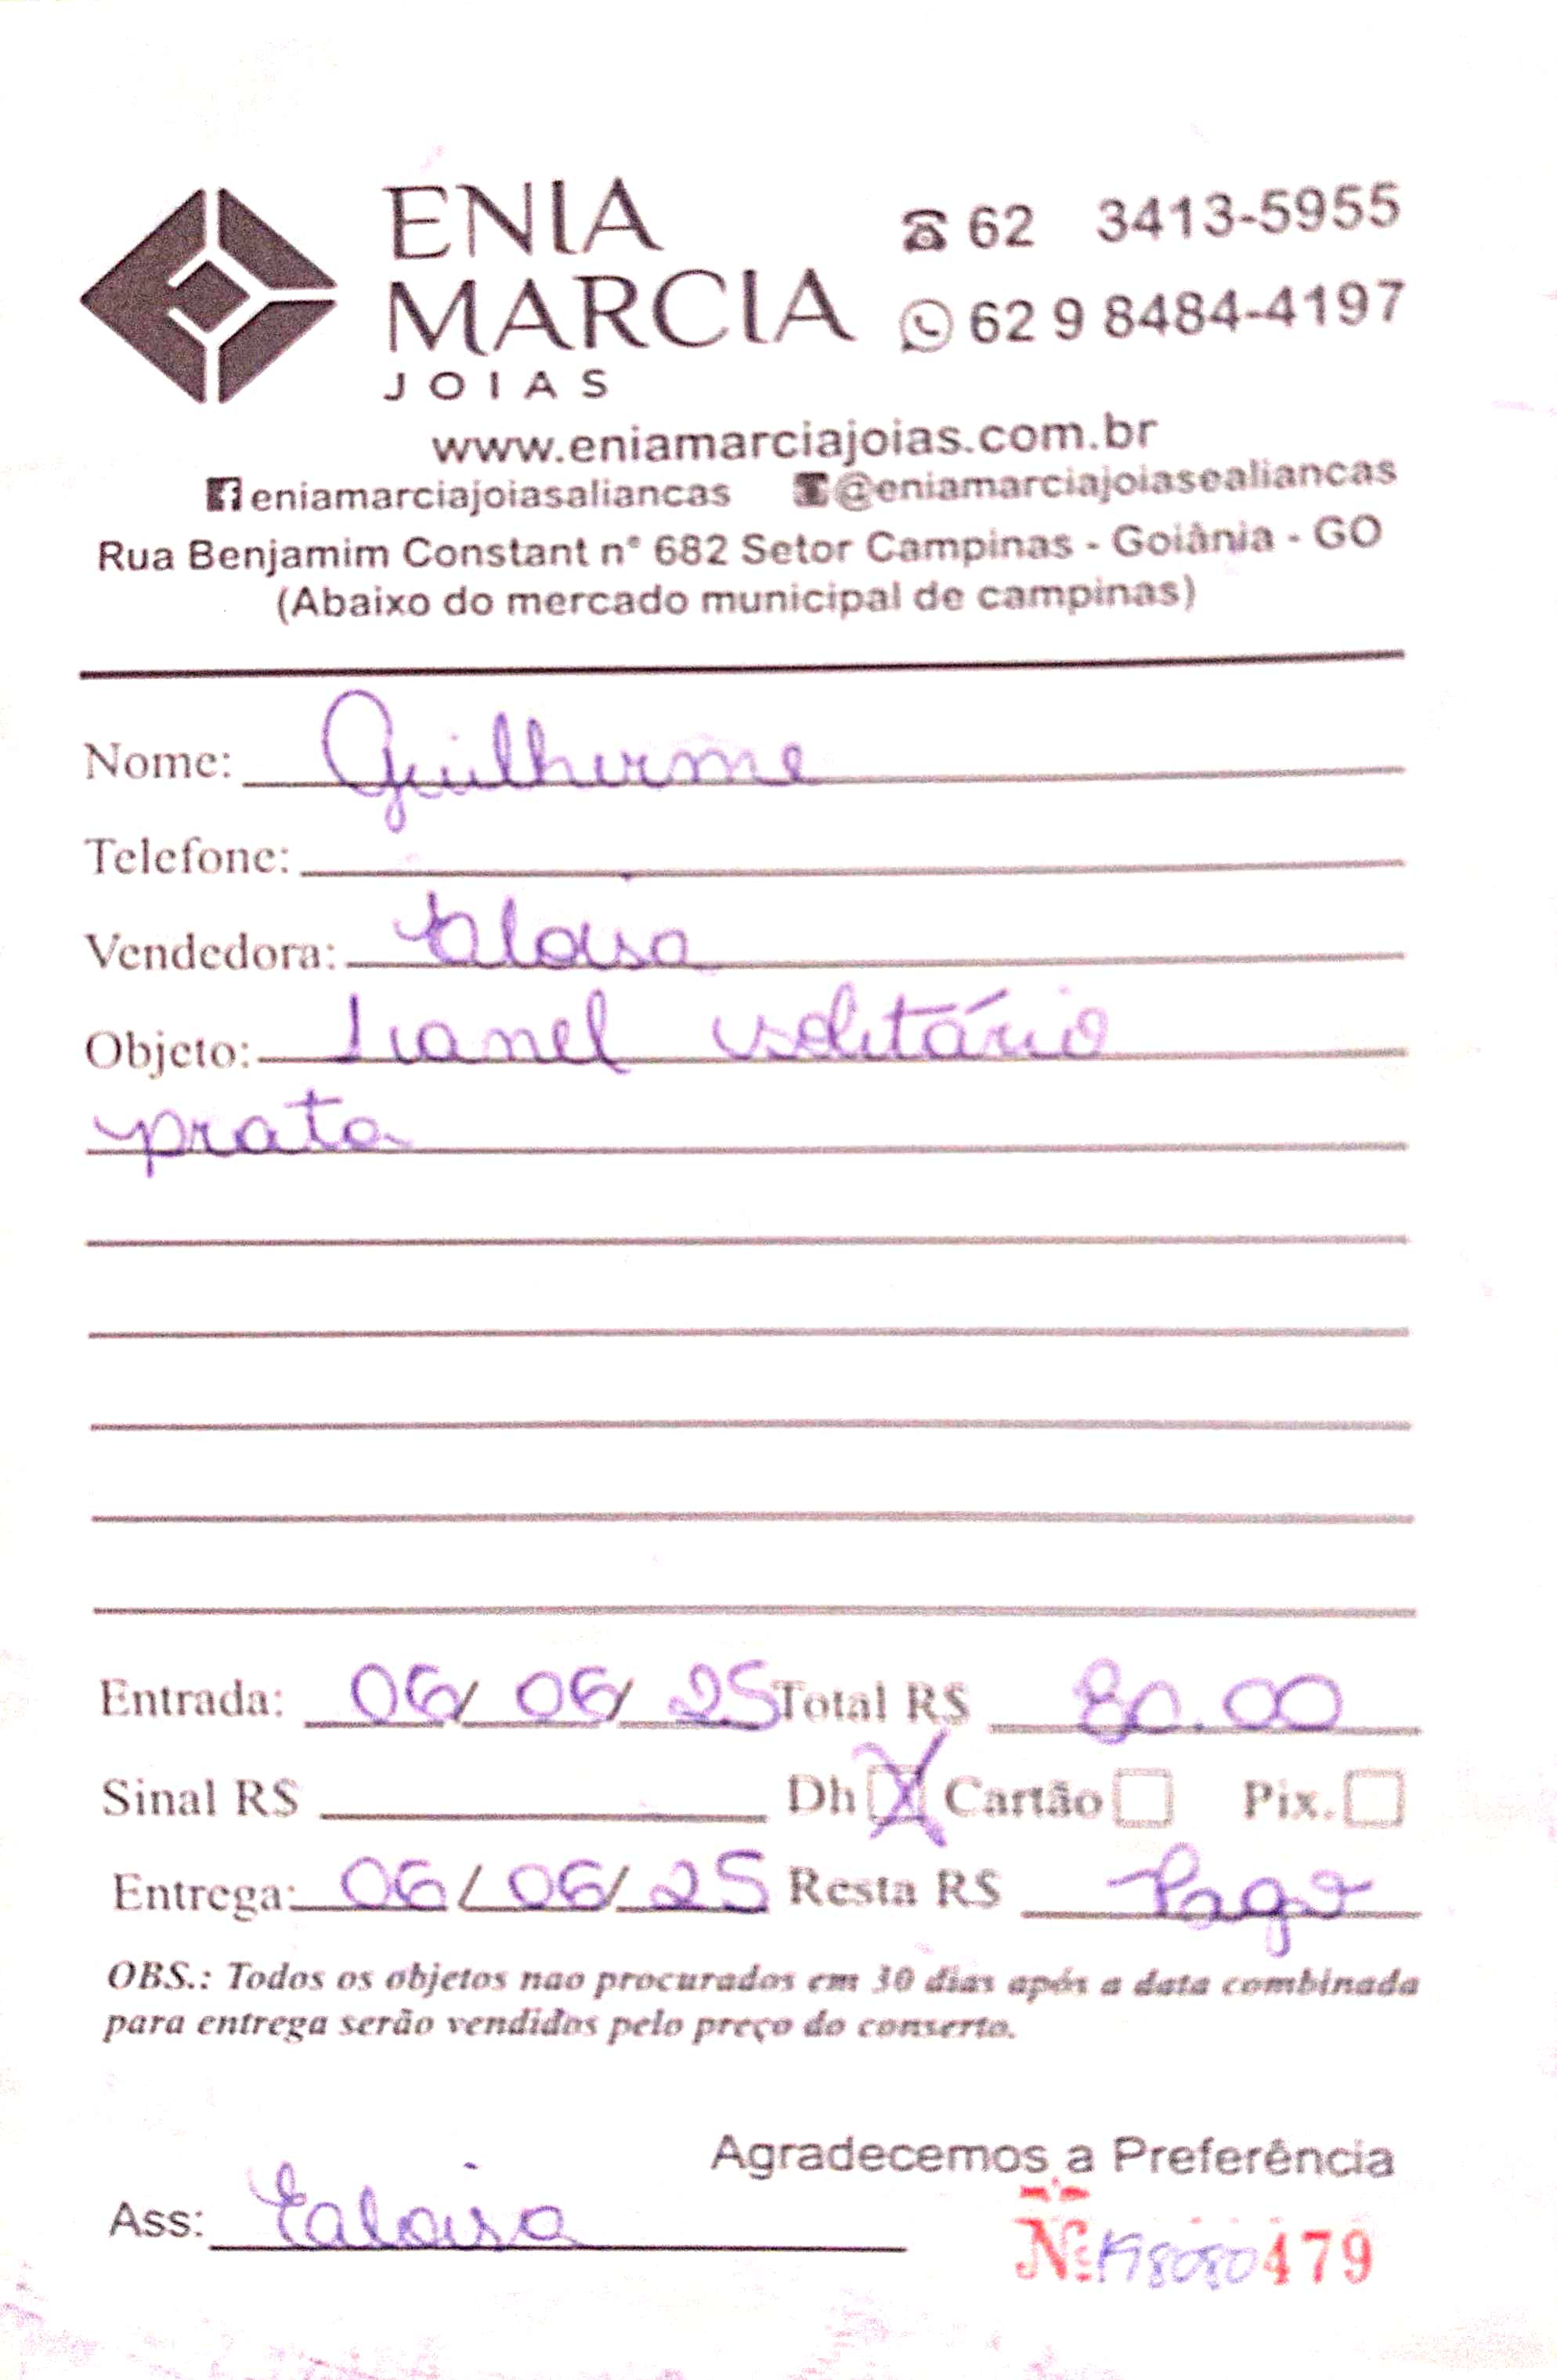 ENIA
MARCIA
JOIAS
62 3413-5955
62 9 8484-4197
www.eniamarciajoias.com.br
eniamarciajoiasaliancas @eniamarciajoiasealiancas
Rua Benjamim Constant n° 682 Setor Campinas - Goiânia - GO
(Abaixo do mercado municipal de campinas)
Nome: Guilherme
Telefone:
Vendedora: Eloisa
Objeto: 1 anel solitário
prata
Entrada: 06/06/25 Total R$ 80.00
Sinal R$ Dh X Cartão Pix.
Entrega: 06/06/25 Resta R$ Pago
OBS.: Todos os objetos nao procurados em 30 dias após a data combinada
para entrega serão vendidos pelo preço do conserto.
Agradecemos a Preferência
Ass:
Nº 479